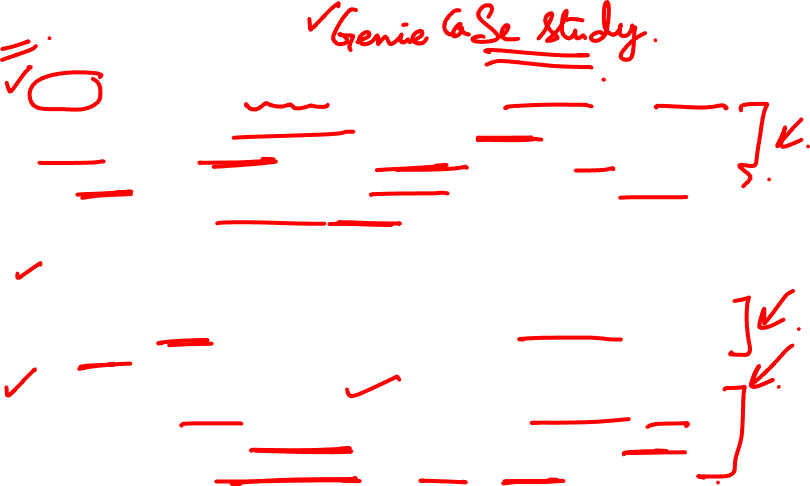 Genie Case Study.